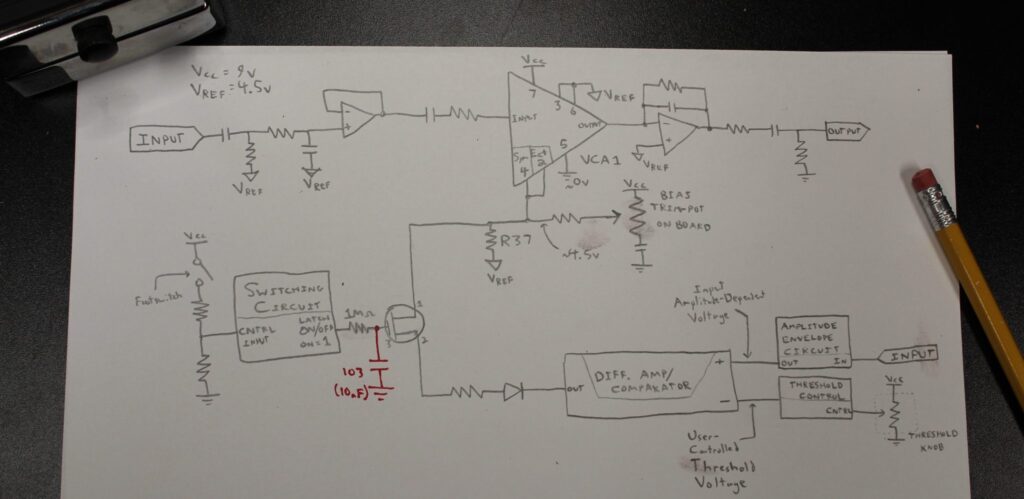 Vcc = 9v
VREF = 4.5v
INPUT
VREF
VREF
Vcc
7
3
6
VREF
INPUT
OUTPUT
5
VCA1
~0v
4
2
VREF
OUTPUT
Vcc
BIAS
TRIM-POT
ON BOARD
R37
~4.5v
VREF
Vcc
Footswitch
SWITCHING
CIRCUIT
LATCH
ON/OFF
ON=1
CNTRL
INPUT
1MΩ
1
2
3
103
(10nF)
Input
Amplitude-Dependent
Voltage
AMPLITUDE
ENVELOPE
CIRCUIT
OUT
IN
INPUT
OUT
DIFF. AMP/
COMPARATOR
+
-
THRESHOLD
CONTROL
CNTRL
Vcc
THRESHOLD
KNOB
User-
Controlled
Threshold
Voltage